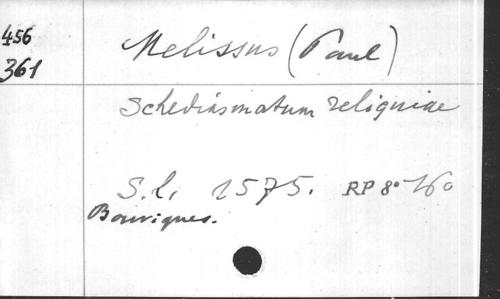 456
361
Melissus (Paul)
Schediasmatum reliquiae
S.l. 1575. RP 8° 160
Bourignes.